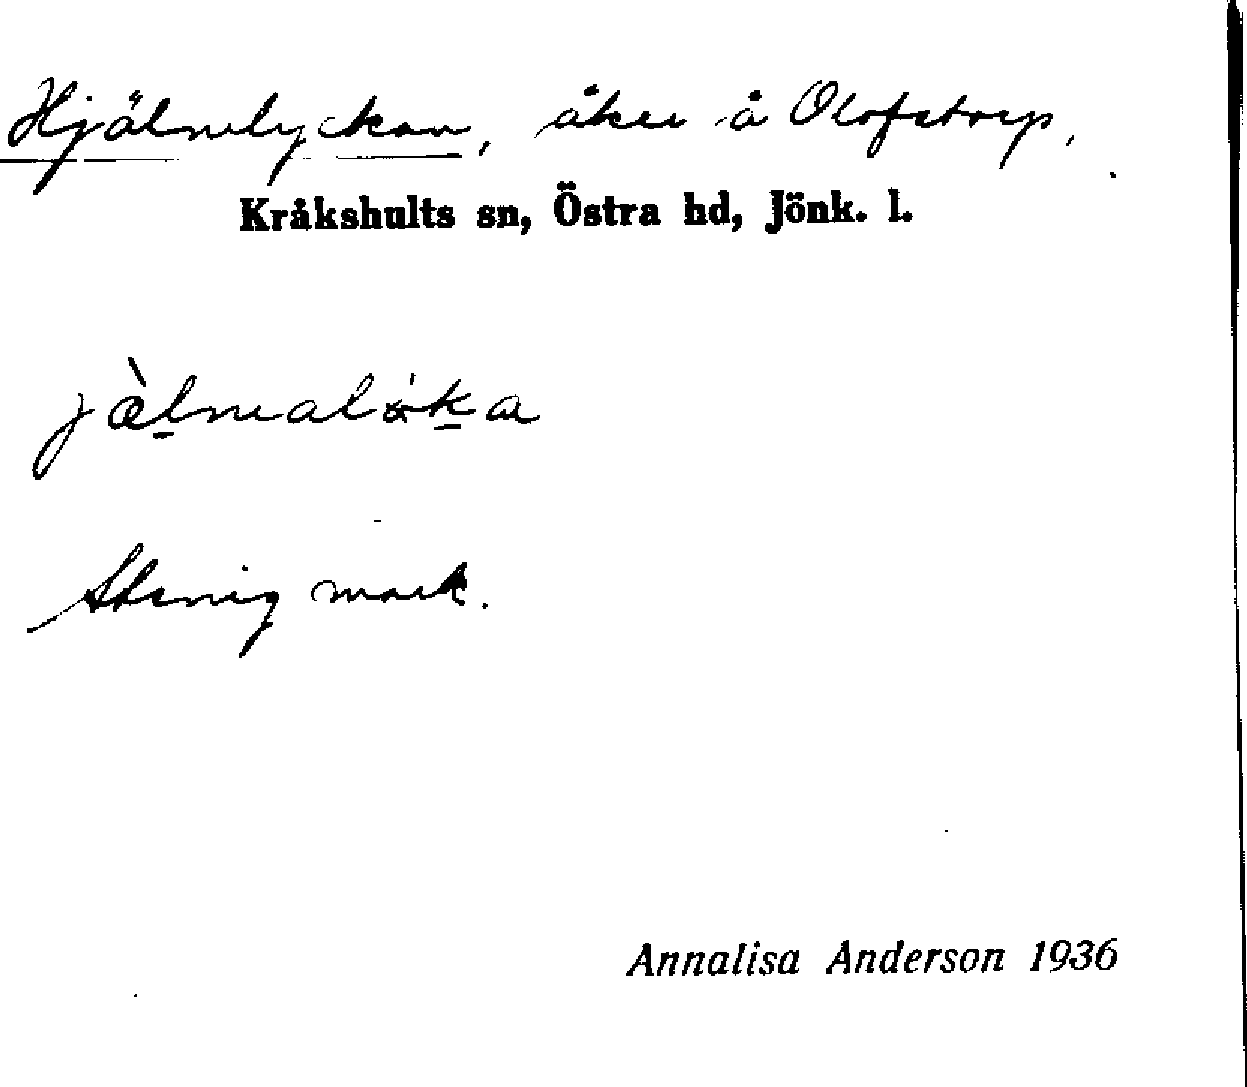 Hjälmelyckan, åker å Olofstorp,
Kråkshults sn, Östra hd, Jönk. l.
jæ̀l̠malø̀k̠a
Stenig mark.
Annalisa Anderson 1936